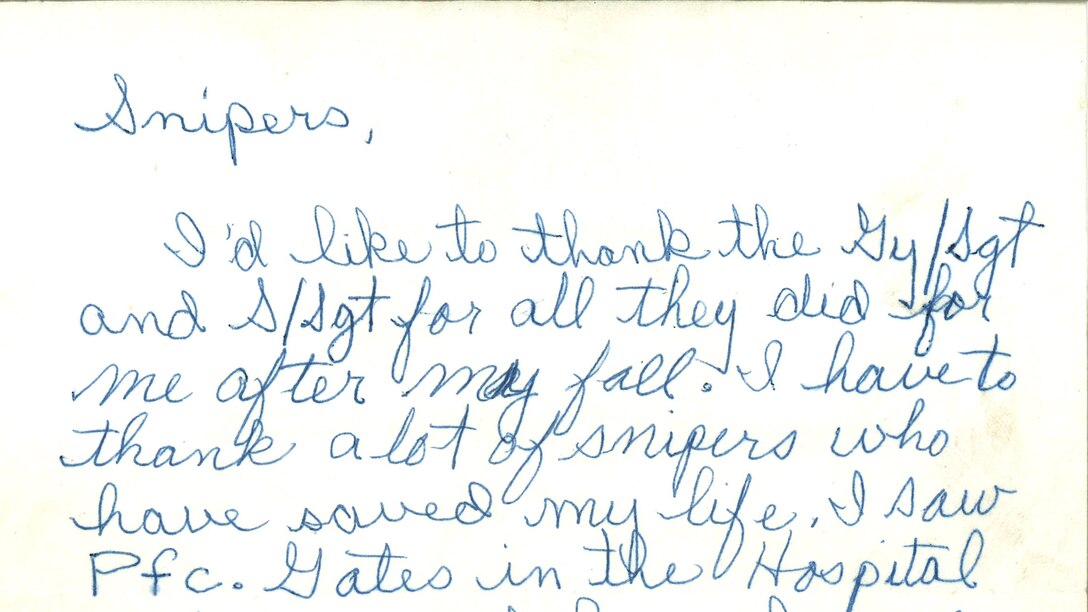 Snipers,
I'd like to thank the Gy/Sgt
and S/Sgt for all they did for
me after my fall. I have to
thank a lot of snipers who
have saved my life. I saw
Pfc. Gates in the Hospital